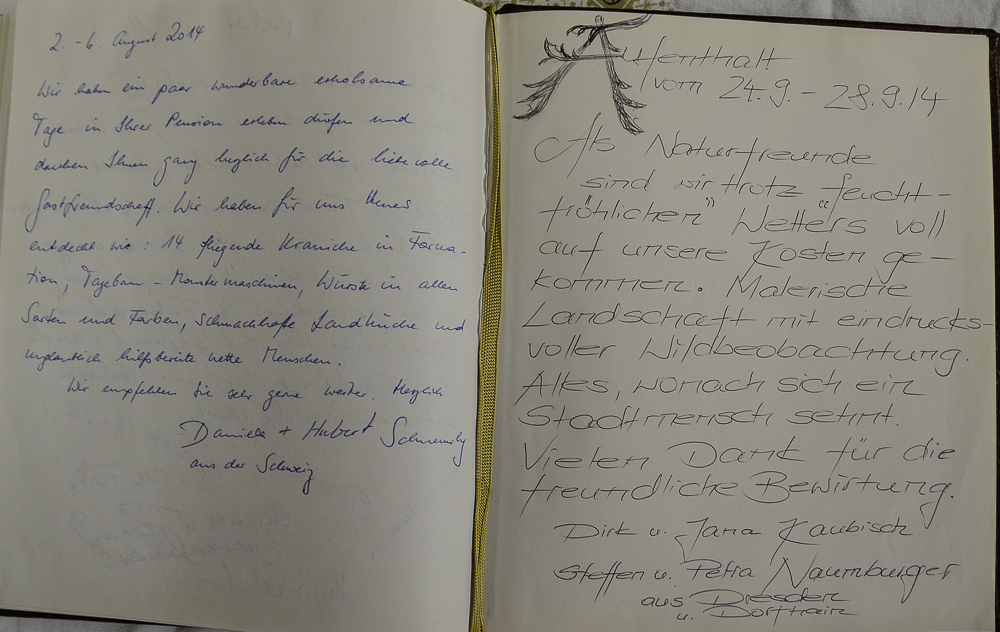 2. - 6. August 2014
Wir haben ein paar wunderbare erholsame
Tage in Ihrer Pension erleben dürfen und
danken Ihnen ganz herzlich für die liebevolle
Gastfreundschaft. Wir haben für uns Neues
entdeckt wie: 14 fliegende Kraniche in Forma-
tion, Tagebau-Monstermaschinen, Würste in allen
Sorten und Farben, schmackhafte Landküche und
unglaublich hilfsbereite nette Menschen.
Wir empfehlen Sie sehr gerne weiter. Herzlich
Daniela + Hubert
aus der Schweiz
Aufenthalt
vom 24.9. - 28.9.14
Als Naturfreunde
sind wir trotz "feucht-
fröhlichen" Wetters voll
auf unsere Kosten ge-
kommen. Malerische
Landschaft mit eindrucks-
voller Wildbeobachtung.
Alles, wonach sich ein
Stadtmensch sehnt.
Vielen Dank für die
freundliche Bewirtung.
Dirk u. Jana Kaubisch
Steffen u. Petra Naumburger
aus Dresden
u. Dorfhain